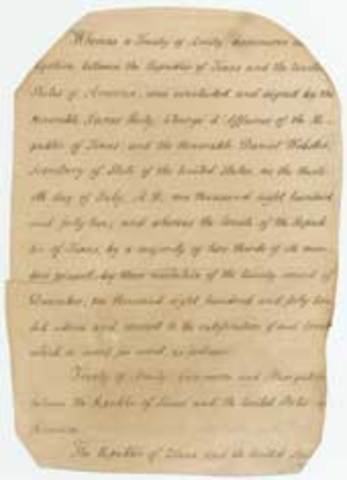 Whereas a Treaty of Amity, Commerce and
between the Republic of Texas and the United
States of America, was concluded and signed by the
Honorable Chargé d'Affaires of the Re-
public of Texas, and the Honorable Daniel Webster,
Secretary of State of the United States, on the
day of July, A.D. one thousand eight hundred
and forty two; and whereas the Senate of the Repub-
lic of Texas, by a majority of two thirds of its mem-
bers present, by their resolution of the second of
December, one thousand eight hundred and forty
advise and consent to the ratification of said
which is word for word, as follows:
Treaty of Amity Commerce and Navigation
between the Republic of Texas and the United States
America
The Republic of Texas and the United